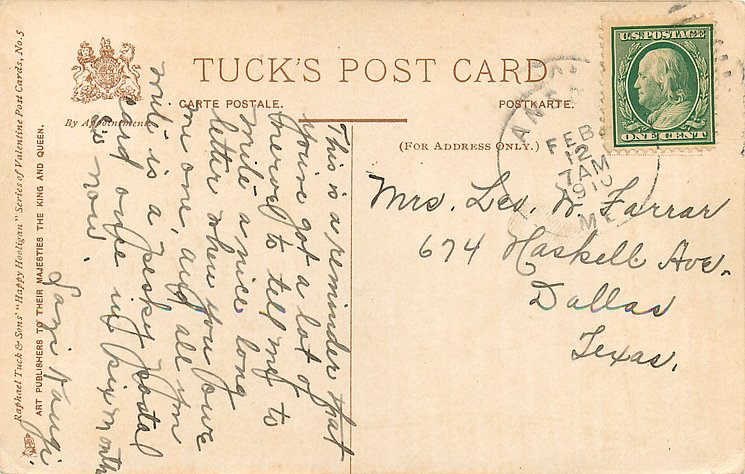 TUCK'S POST CARD
CARTE POSTALE.
POSTKARTE.
By Appointment.
(FOR ADDRESS ONLY.)
U.S. POSTAGE
ONE CENT
FEB
12
7 AM
1910
ME
Mrs. Leo. W. Farrar
674 Haskell Ave.
Dallas
Texas.
This is a reminder that
you've got a lot of
nerve to tell me to
write a nice long
letter when you owe
me one, and all you
write is a pesky postal
card once in six months
So now.
Raphael Tuck & Sons' "Happy Hooligan" Series of Valentine Post Cards, No. 5
ART PUBLISHERS TO THEIR MAJESTIES THE KING AND QUEEN.